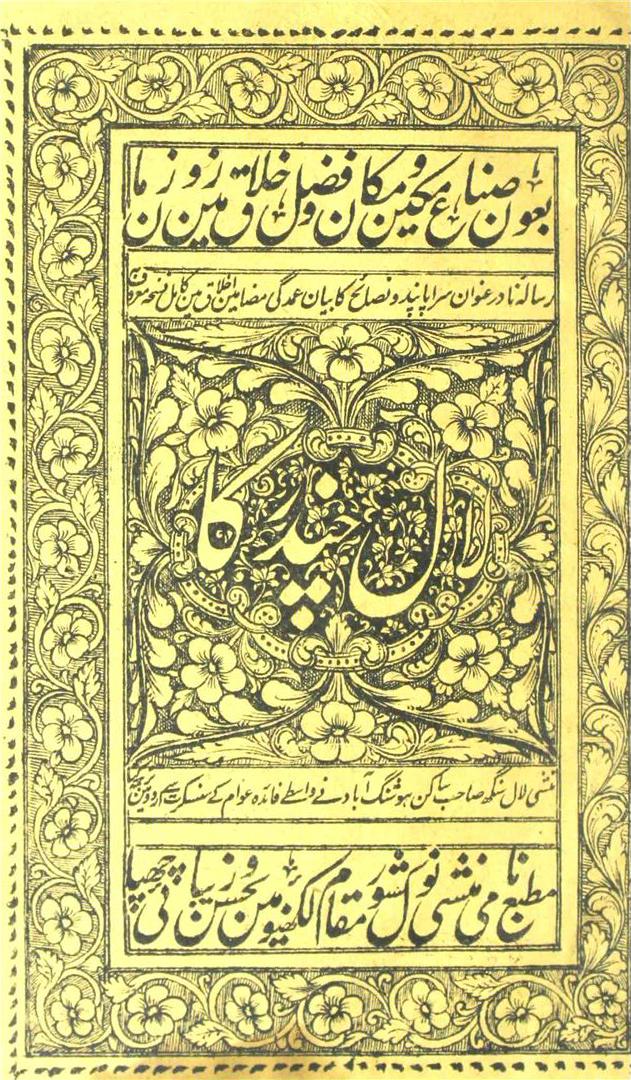 بعون صناع مکین و مکان و فضل خلاق زمین و زمان
رسالہ نادر عنوان سراپا پند و نصائح کا بیان عمدگی مضامین اخلاق مین کامل نسخہ معروف بہ
لال چندرکا
منشی لال سنگھ صاحب ساکن ہوشنگ آباد نے واسطے فائدہ عوام کے سنسکرت سے اردو مین
مطبع نامی منشی نولکشور مقام لکھنؤ مین بحسن و زیبائی چھپا